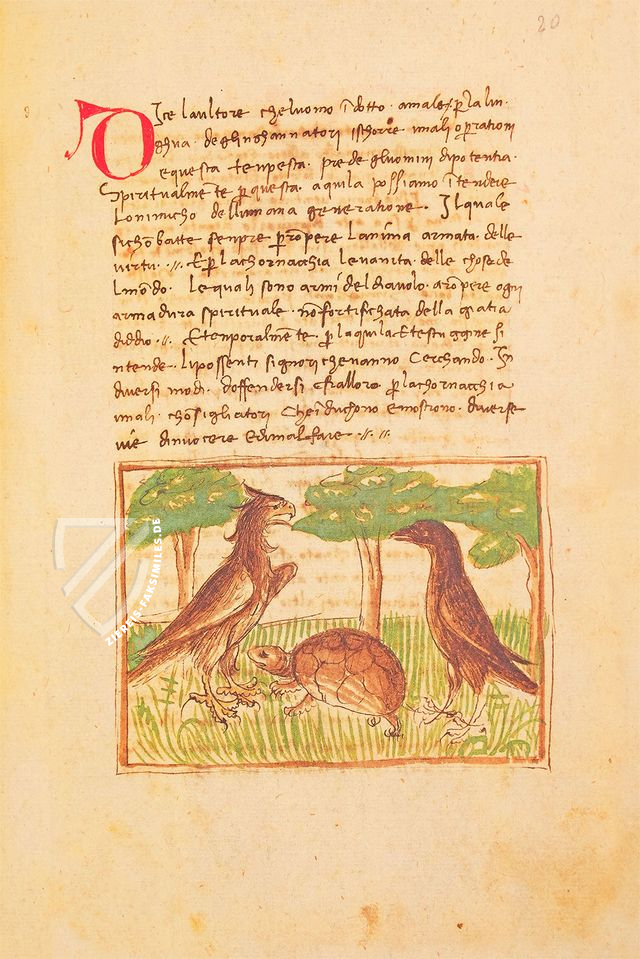 20
Dice laultore cheluomo idotto · amale · pla lin ·
ghua · deglinghannatori ischorre imali oprationi
equesta tenpesta · prede gluomini dipotentia ·
Spiritualmete pquesta · aquila possiamo itendere
Lonimicho delliumana generatione · Ilquale
sichonbatte senpre prompere lanima armata · delle
virtu · // · Epla chornacchia levanita · delle chose de
lmodo · Le quali sono armi del diavolo · arompere ogni
armadura spirituale · nofortifichata della gratia
diddio · // · Etenporalmete · plaquila Etestuggine si
intende · li possenti signori chevanno Cerchando · In
diversi modi · doffendersi tralloro plachornacchia
imali · chosigliatori Cheiduchono emostrono · diverse
vie dinuocere Edimalfare · // · // ·
ZIEREIS-FAKSIMILES.DE